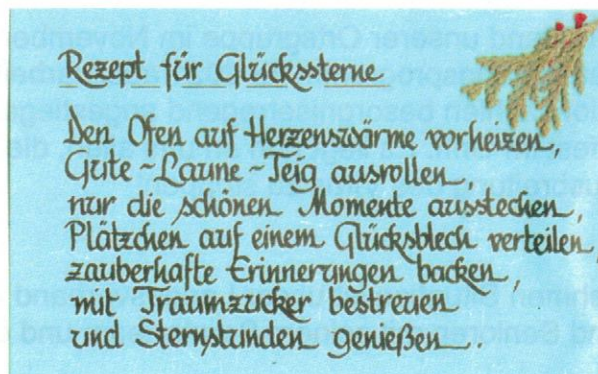 Rezept für Glückssterne
Den Ofen auf Herzenswärme vorheizen,
Gute-Laune-Teig ausrollen,
nur die schönen Momente ausstechen,
Plätzchen auf einem Glücksblech verteilen,
zauberhafte Erinnerungen backen,
mit Traumzucker bestreuen
und Sternstunden genießen.